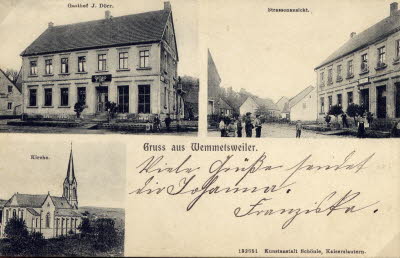 Gasthof J. Dörr.
Strassenansicht.
Gruss aus Wemmetsweiler.
Kirche.
Viele Grüße sendet
dir Johanna.
Franziska.
152051 Kunstanstalt Schönle, Kaiserslautern.